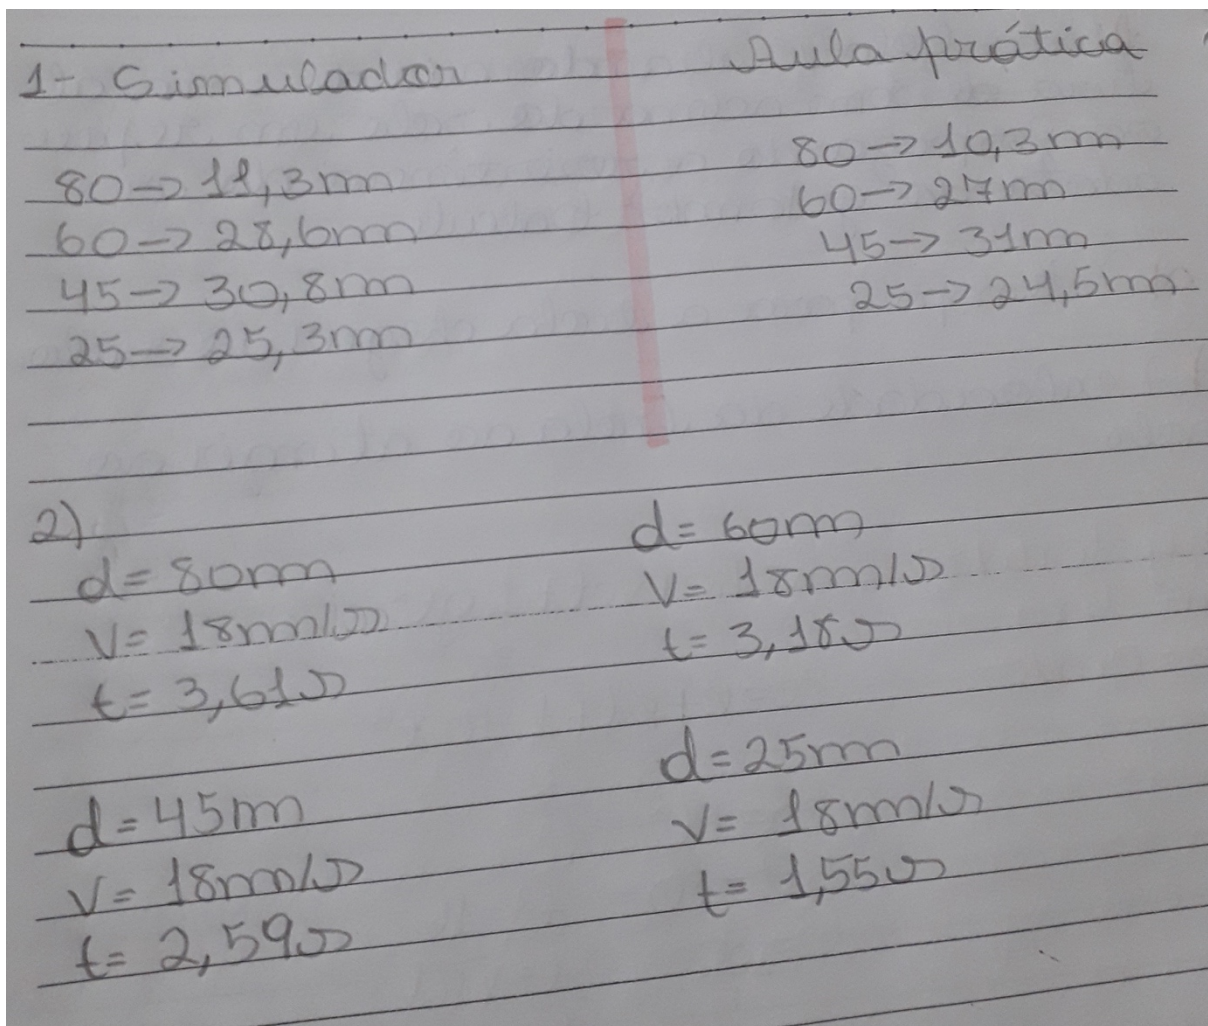 1- Simulador
80→ 11,3m
60→ 28,6m
45→ 30,8m
25→ 25,3m
Aula prática
80→ 10,3m
60→ 27m
45→ 31m
25→ 24,5m
2)
d= 80m
v= 18m/s
t= 3,61s
d= 60m
v= 18m/s
t= 3,18s
d= 45m
v= 18m/s
t= 2,59s
d= 25m
v= 18m/s
t= 1,55s